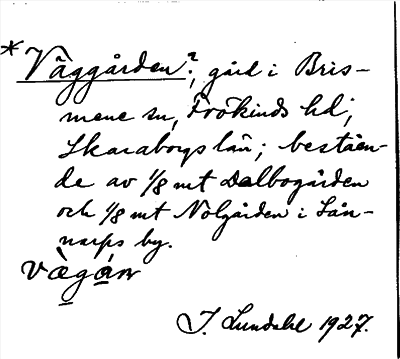 *Väggården?, gård i Bris-
mene sn, Frökinds hd,
Skaraborgs län; beståen-
de av 1/8 mt Dalbogården
och 1/8 mt Nolgården i Lån-
narps by.
vägán
I. Lundahl 1927.